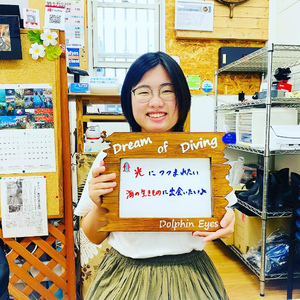 Dream of Diving
光につつまれたい
海の生きものに出会いたい
Dolphin Eyes